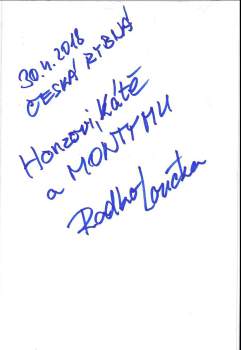 30.4.2018
ČESKÁ RYBNÁ
Honzovi, Kátě
a MONTYMU
Radho Loučka